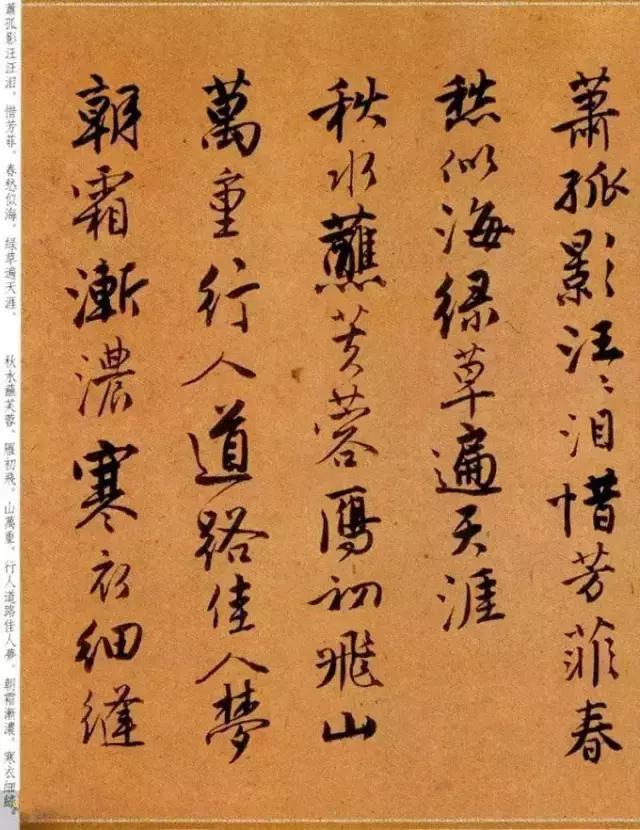 蕭孤影汪〻泪惜芳菲春
愁似海绿草遍天涯
秋水蘸芙蓉鴈初飛山
萬重行人道路佳人梦
朝霜漸濃寒衣细縫
蕭孤影汪汪泪。惜芳菲。春愁似海。绿草遍天涯。 秋水蘸芙蓉。雁初飛。山萬重。行人道路佳人夢。朝霜漸濃。寒衣细縫。